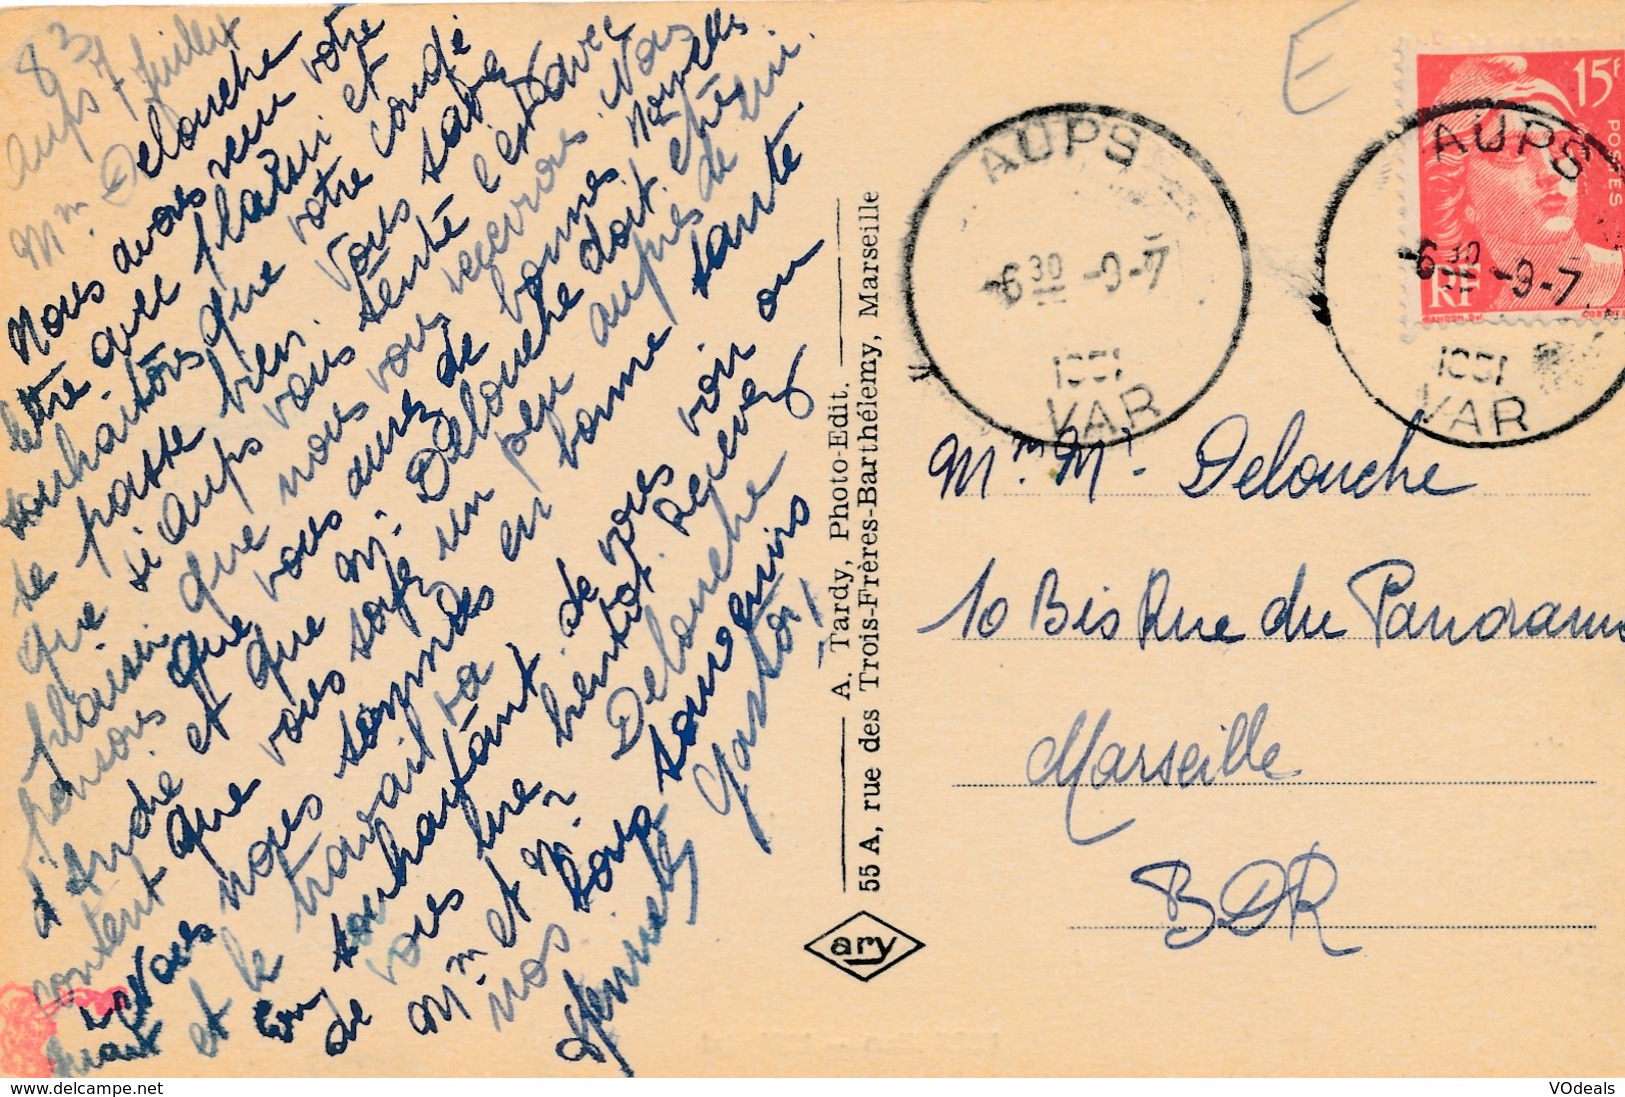 83
Aups 7 Juillet
Mm Delouche
Nous avons reçu votre
lettre avec plaisir et
souhaitons que votre coude
se passe bien. Vous savez
que si Aups vous tente c'est avec
plaisir que nous vous recevrons. Nous
pensons que vous aurez de bonnes nouvelles
d'André et que Mr. Delouche doit être
content que vous soyez un peu auprès de lui.
Nous nous sommes en bonne santé.
et le travail va
En souhaitant de vous voir ou
de vous lire bientôt. Recevez
Mm et Mr Delouche
nos bons souvenirs
Gaston
AUPS
6 30 -9-7
1951
VAR
AUPS
6 30 -9-7
1951
VAR
E
15F
POSTES
RF
A. Tardy, Photo-Edit.
55 A, rue des Trois-Frères-Barthélemy, Marseille
ary
Mm. Mr. Delouche
10 Bis Rue du Panorama
Marseille
BDR
www.delcampe.net
VOdeals